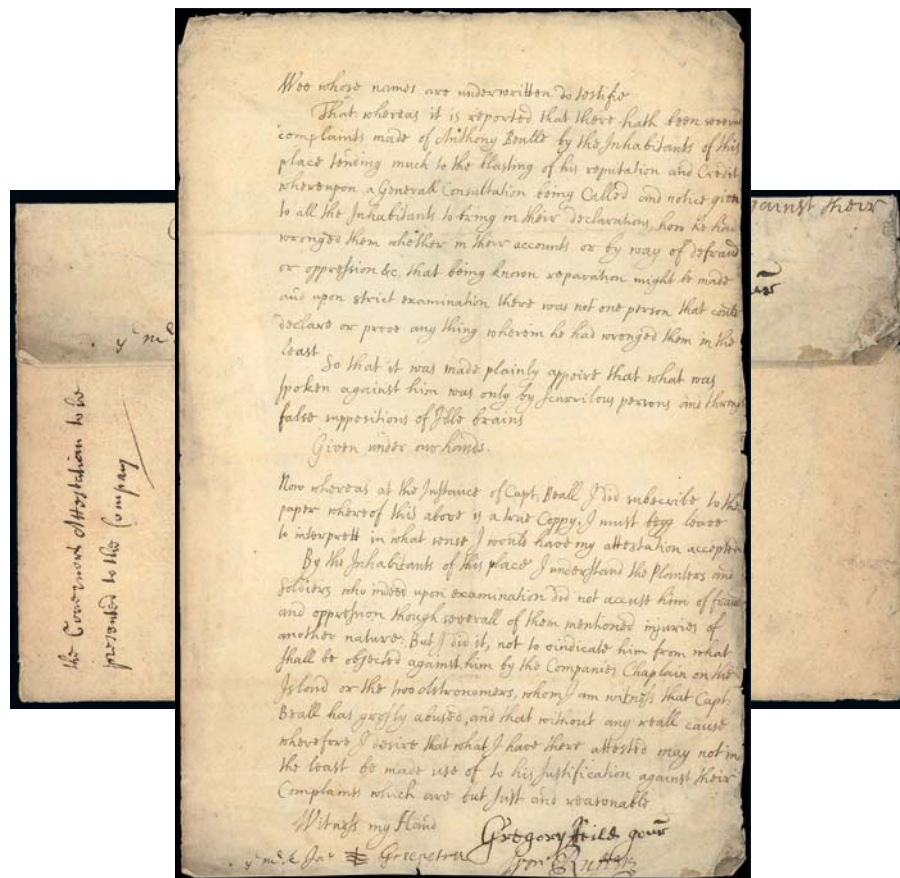 Wee whose names are underwritten do testifie
That whereas it is reported that there hath been severall
complaints made of Anthony Bealle by the Inhabitants of this
place tending much to the blasting of his reputation and Credit
whereupon a Generall Consultation being Called and notice given
to all the Inhabitants to bring in their declarations, how he had
wronged them whether in their accounts or by way of defraud
or oppression &c. that being known reparation might be made
and upon strict examination there was not one person that could
declare or prove any thing wherein he had wronged them in the
least
So that it was made plainly appeire that what was
spoken against him was only by scurrilous persons and through
false suppositions of Idle brains
Given under our hands.
Now whereas at the Instance of Capt. Beall I did subscribe to the
paper whereof this above is a true Coppy, I must begg leave
to interprett in what sense I would have my attestation accepted
By the Inhabitants of this place I understand the Planters and
Soldiers who indeed upon examination did not accuse him of fraud
and oppression though severall of them mentioned injuries of
another nature: But I did it, not to vindicate him from what
shall be objected against him by the Companies Chaplain on the
Island or the two Astronomers, whom I am witness that Capt.
Beall has grossly abused, and that without any reall cause
wherefore I desire that what I have there attested may not in
the least be made use of to his Justification against their
Complaints which are but Just and reasonable
Witness my Hand
Gregory Feild gour
the Governors Attestation to be
presented to the Company
against their